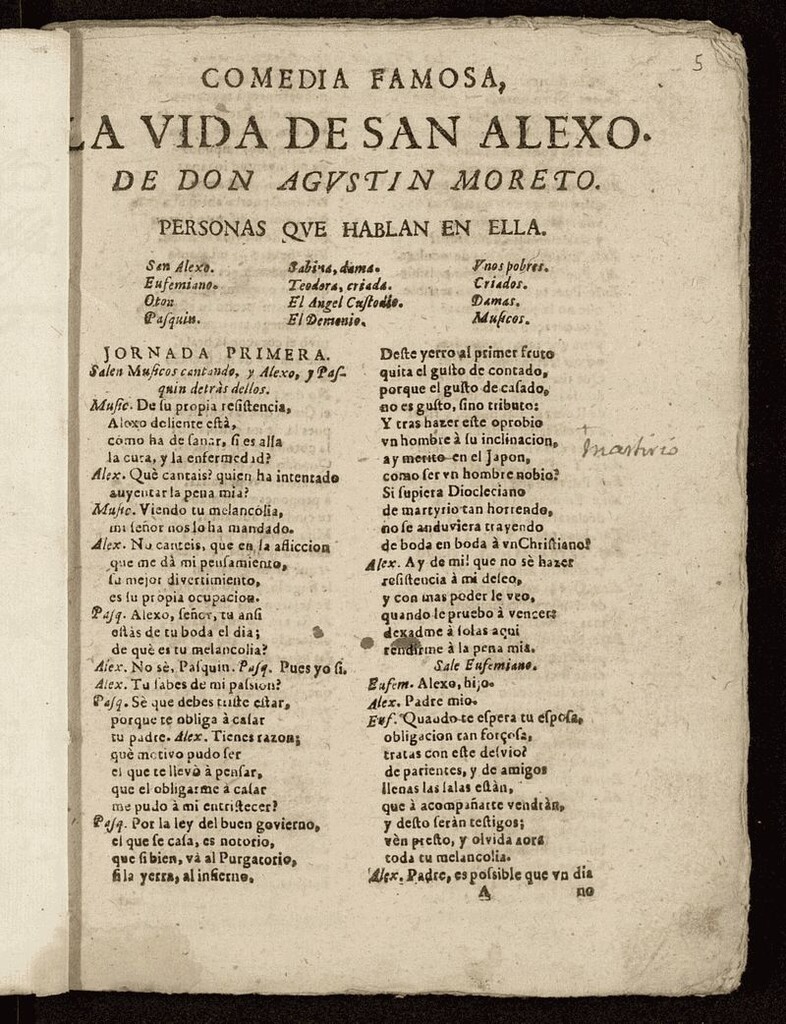 5
COMEDIA FAMOSA,
LA VIDA DE SAN ALEXO.
DE DON AGVSTIN MORETO.
PERSONAS QVE HABLAN EN ELLA.
San Alexo.
Eufemiano.
Oton
Pasquin.
Sabina, dama.
Teodora, criada.
El Angel Cuſtodio.
El Demonio.
Vnos pobres.
Criados.
Damas.
Muſicos.
JORNADA PRIMERA.
Salen Muſicos cantando, y Alexo, y Paſ-
quin detràs dellos.
Muſic. De ſu propia reſiſtencia,
Alexo doliente eſtà,
còmo ha de ſanar, ſi es alla
la cura, y la enfermedad?
Alex. Què cantais? quien ha intentado
auyentar la pena mia?
Muſic. Viendo tu melancolia,
mi ſeñor nos lo ha mandado.
Alex. No canteis, que en la afliccion
que me dà mi penſamiento,
ſu mejor divertimiento,
es ſu propia ocupacion.
Paſq. Alexo, ſeñor, tu anſi
eſtàs de tu boda el dia;
de què es tu melancolia?
Alex. No sè, Paſquin. Paſq. Pues yo ſi.
Alex. Tu ſabes de mi paſsion?
Paſq. Sè que debes triſte eſtar,
porque te obliga à caſar
tu padre. Alex. Tienes razon;
què motivo pudo ſer
el que te llevò à penſar,
que el obligarme à caſar
me pudo à mi entriſtecer?
Paſq. Por la ley del buen govierno,
el que ſe caſa, es notorio,
que ſi bien, và al Purgatorio,
ſi la yerra, al infierno,
Deſte yerro al primer fruto
quita el guſto de contado,
porque el guſto de caſado,
no es guſto, ſino tributo:
Y tras hazer eſte oprobio
vn hombre à ſu inclinacion,
ay merito en el Japon,
martirio
como ſer vn hombre nobio?
Si ſupiera Diocleciano
de martyrio tan horrendo,
no ſe anduviera trayendo
de boda en boda à vn Chriſtiano?
Alex. Ay de mi! que no sè hazer
reſiſtencia à mi deſeo,
y con mas poder le veo,
quando le pruebo à vencer:
dexadme à ſolas aqui
rendirme à la pena mia.
Sale Eufemiano.
Eufem. Alexo, hijo.
Alex. Padre mio.
Euf. Quando te eſpera tu eſpoſa,
obligacion tan forçoſa,
tratas con eſte deſvio?
de parientes, y de amigos
llenas las ſalas eſtàn,
que à acompañarte vendràn,
y deſto ſeràn teſtigos;
vèn preſto, y olvida aora
toda tu melancolia.
Alex. Padre, es poſsible que vn dia
A
no